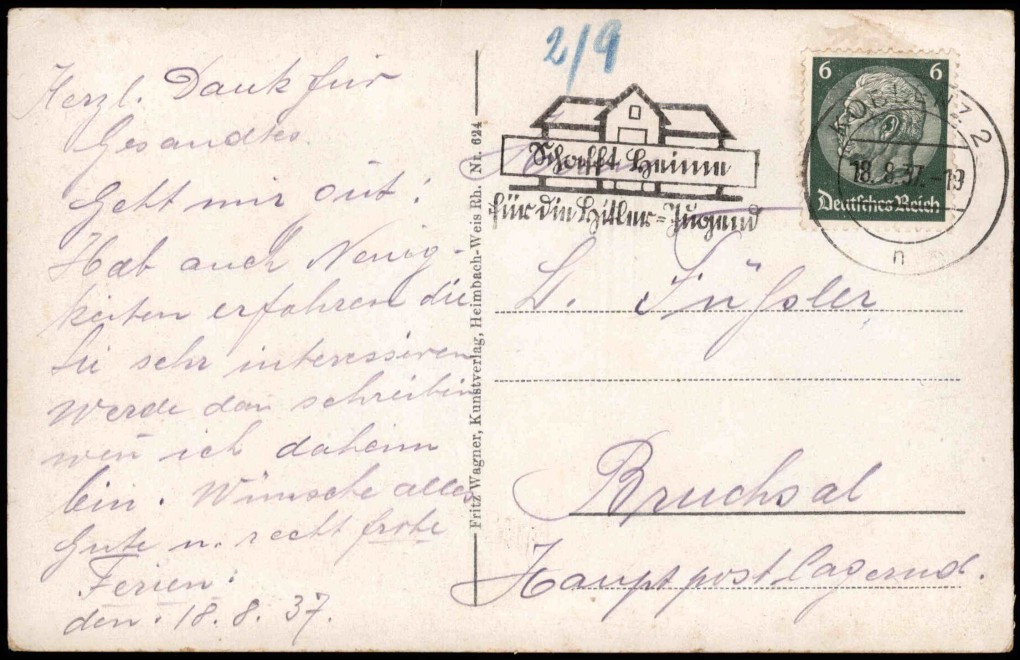 Herzl. Dank für
Gesandtes.
Geht mir gut!
Hab auch Neuig-
keiten erfahren die
Sie sehr interessieren
Werde dan schreiben
wen ich daheim
bin. Wünsche alles
Gute u. recht frohe
Ferien!
den. 18. 8. 37.
Fritz Wagner, Kunstverlag, Heimbach-Weis Rh. Nr. 624
2/9
Schafft Heime
für die Hitler=Jugend
6 6
Deutsches Reich
KOBLENZ 2
18.8.37.-19
n
L.
Bruchsal
Hauptpostlagernd.